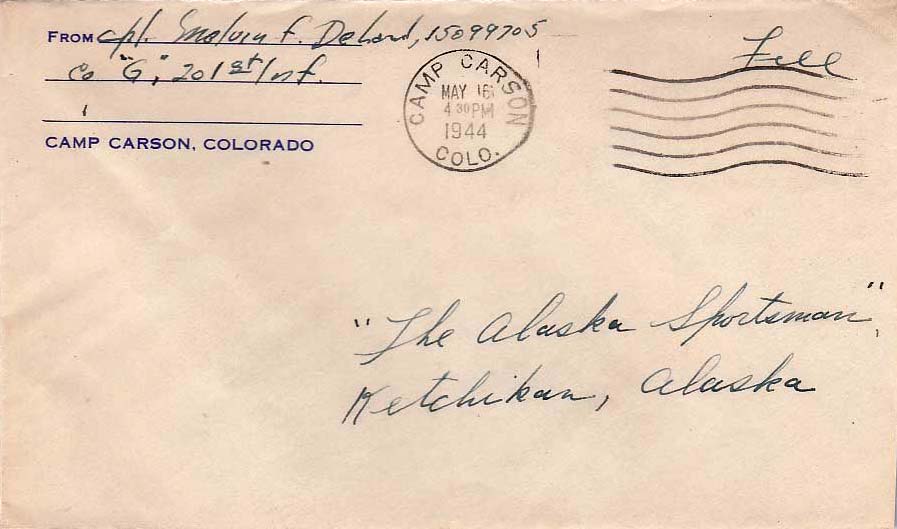 FROM Cpl. Melvin F. DeHard, 15899705
Co "G," 201st Inf.
CAMP CARSON, COLORADO
CAMP CARSON
MAY 16
4 30 PM
1944
COLO.
Free
"The Alaska Sportsman",
Ketchikan, Alaska